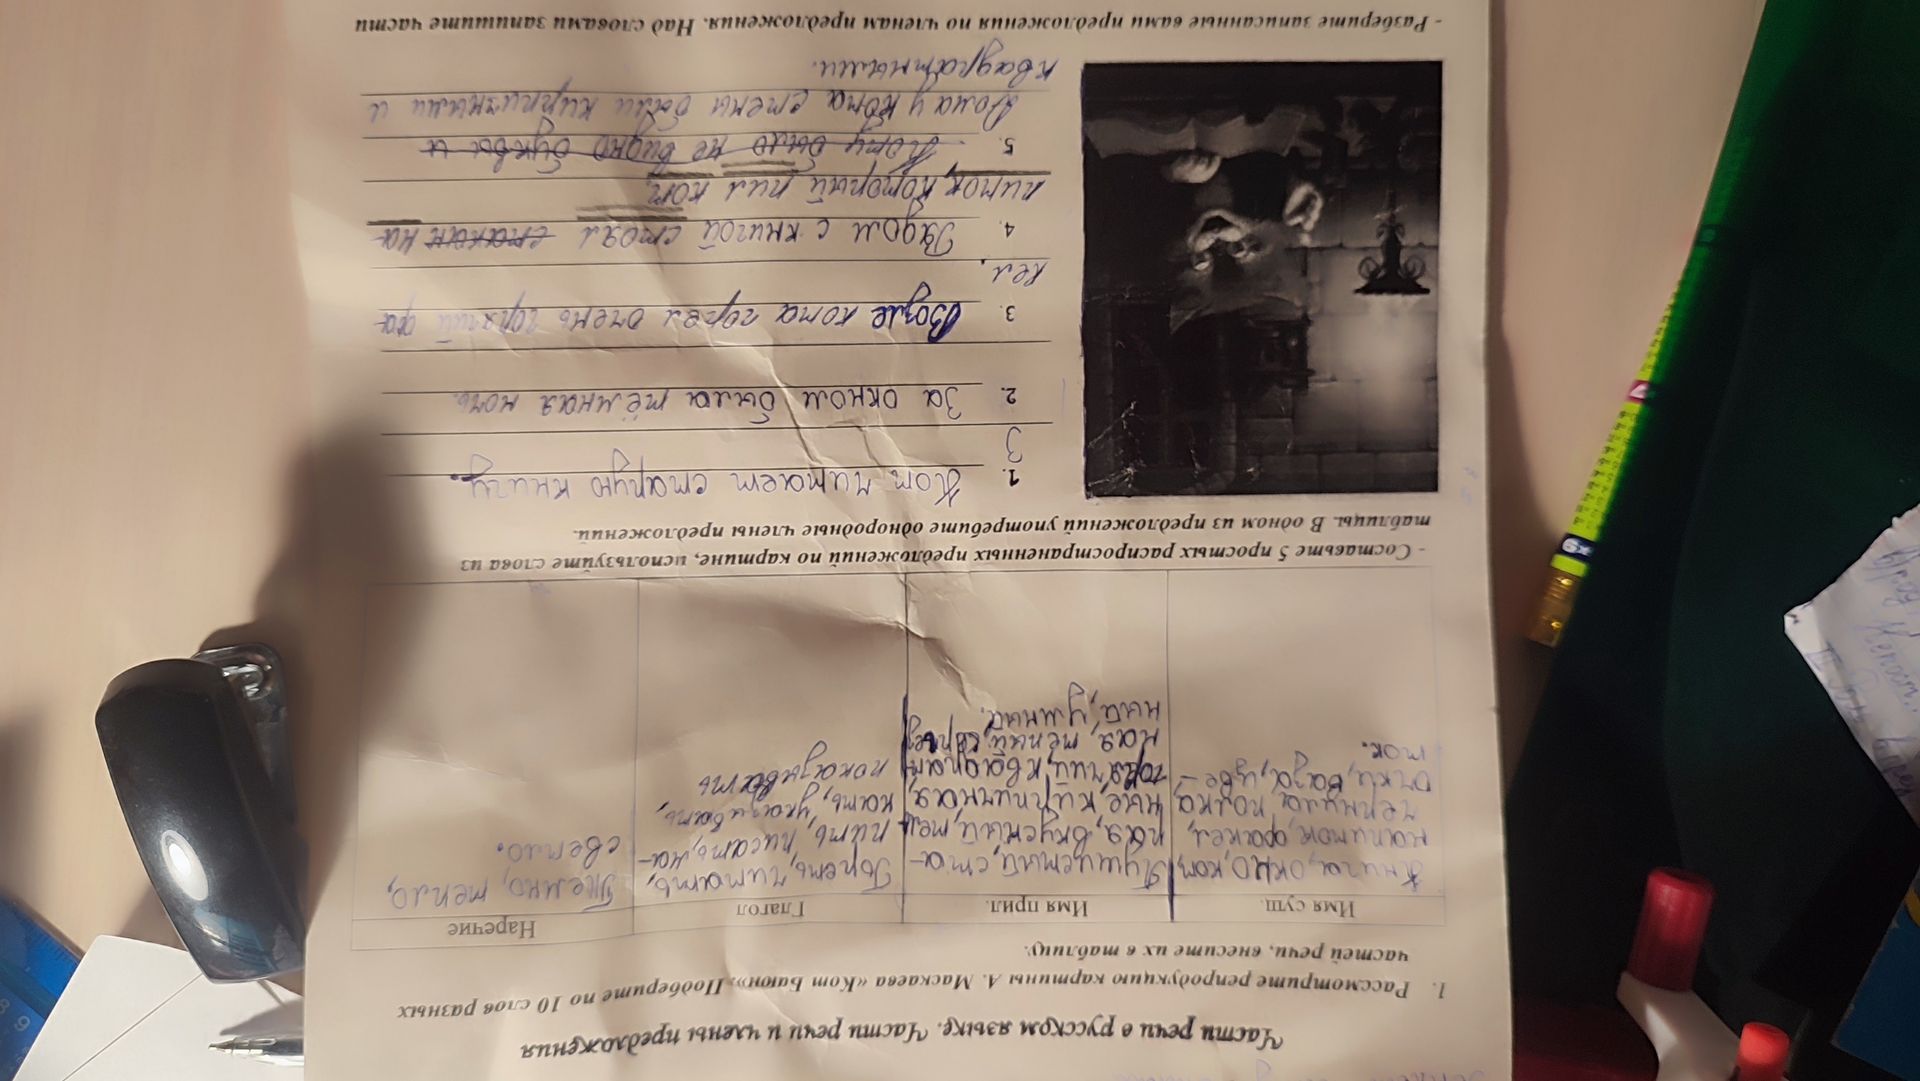 Части речи в русском языке. Части речи и члены предложения
1. Рассмотрите репродукцию картины А. Маскаева «Кот Баюн». Подберите по 10 слов разных
частей речи, внесите их в таблицу.
Имя сущ. Имя прил. Глагол Наречие
Книга, окно, кот,
напиток, факел,
чернила, полка,
очки, ваза, цве-
ток.
Пушистый, ста-
рая, вкусный, тем-
ные, кирпичная,
горячий, квадрат-
ная, теплый,
ний, умный.
Гореть, читать,
пить, писать, на-
кать, указывать,
показывать
Темно, тепло,
светло.
- Составьте 5 простых распространенных предложений по картине, используйте слова из
таблицы. В одном из предложений употребите однородные члены предложений.
1. Кот читает старую книгу.
З
2. За окном была тёмная ночь.
3. Возле кота горел очень горячий фа-
кел.
4. Рядом с книгой стоял стакан на-
питок, который пил кот.
5. Коту было не видно буквы и
Дома у кота стены были кирпичными и
квадратными.
- Разберите записанные вами предложения по членам предложения. Над словами запишите части